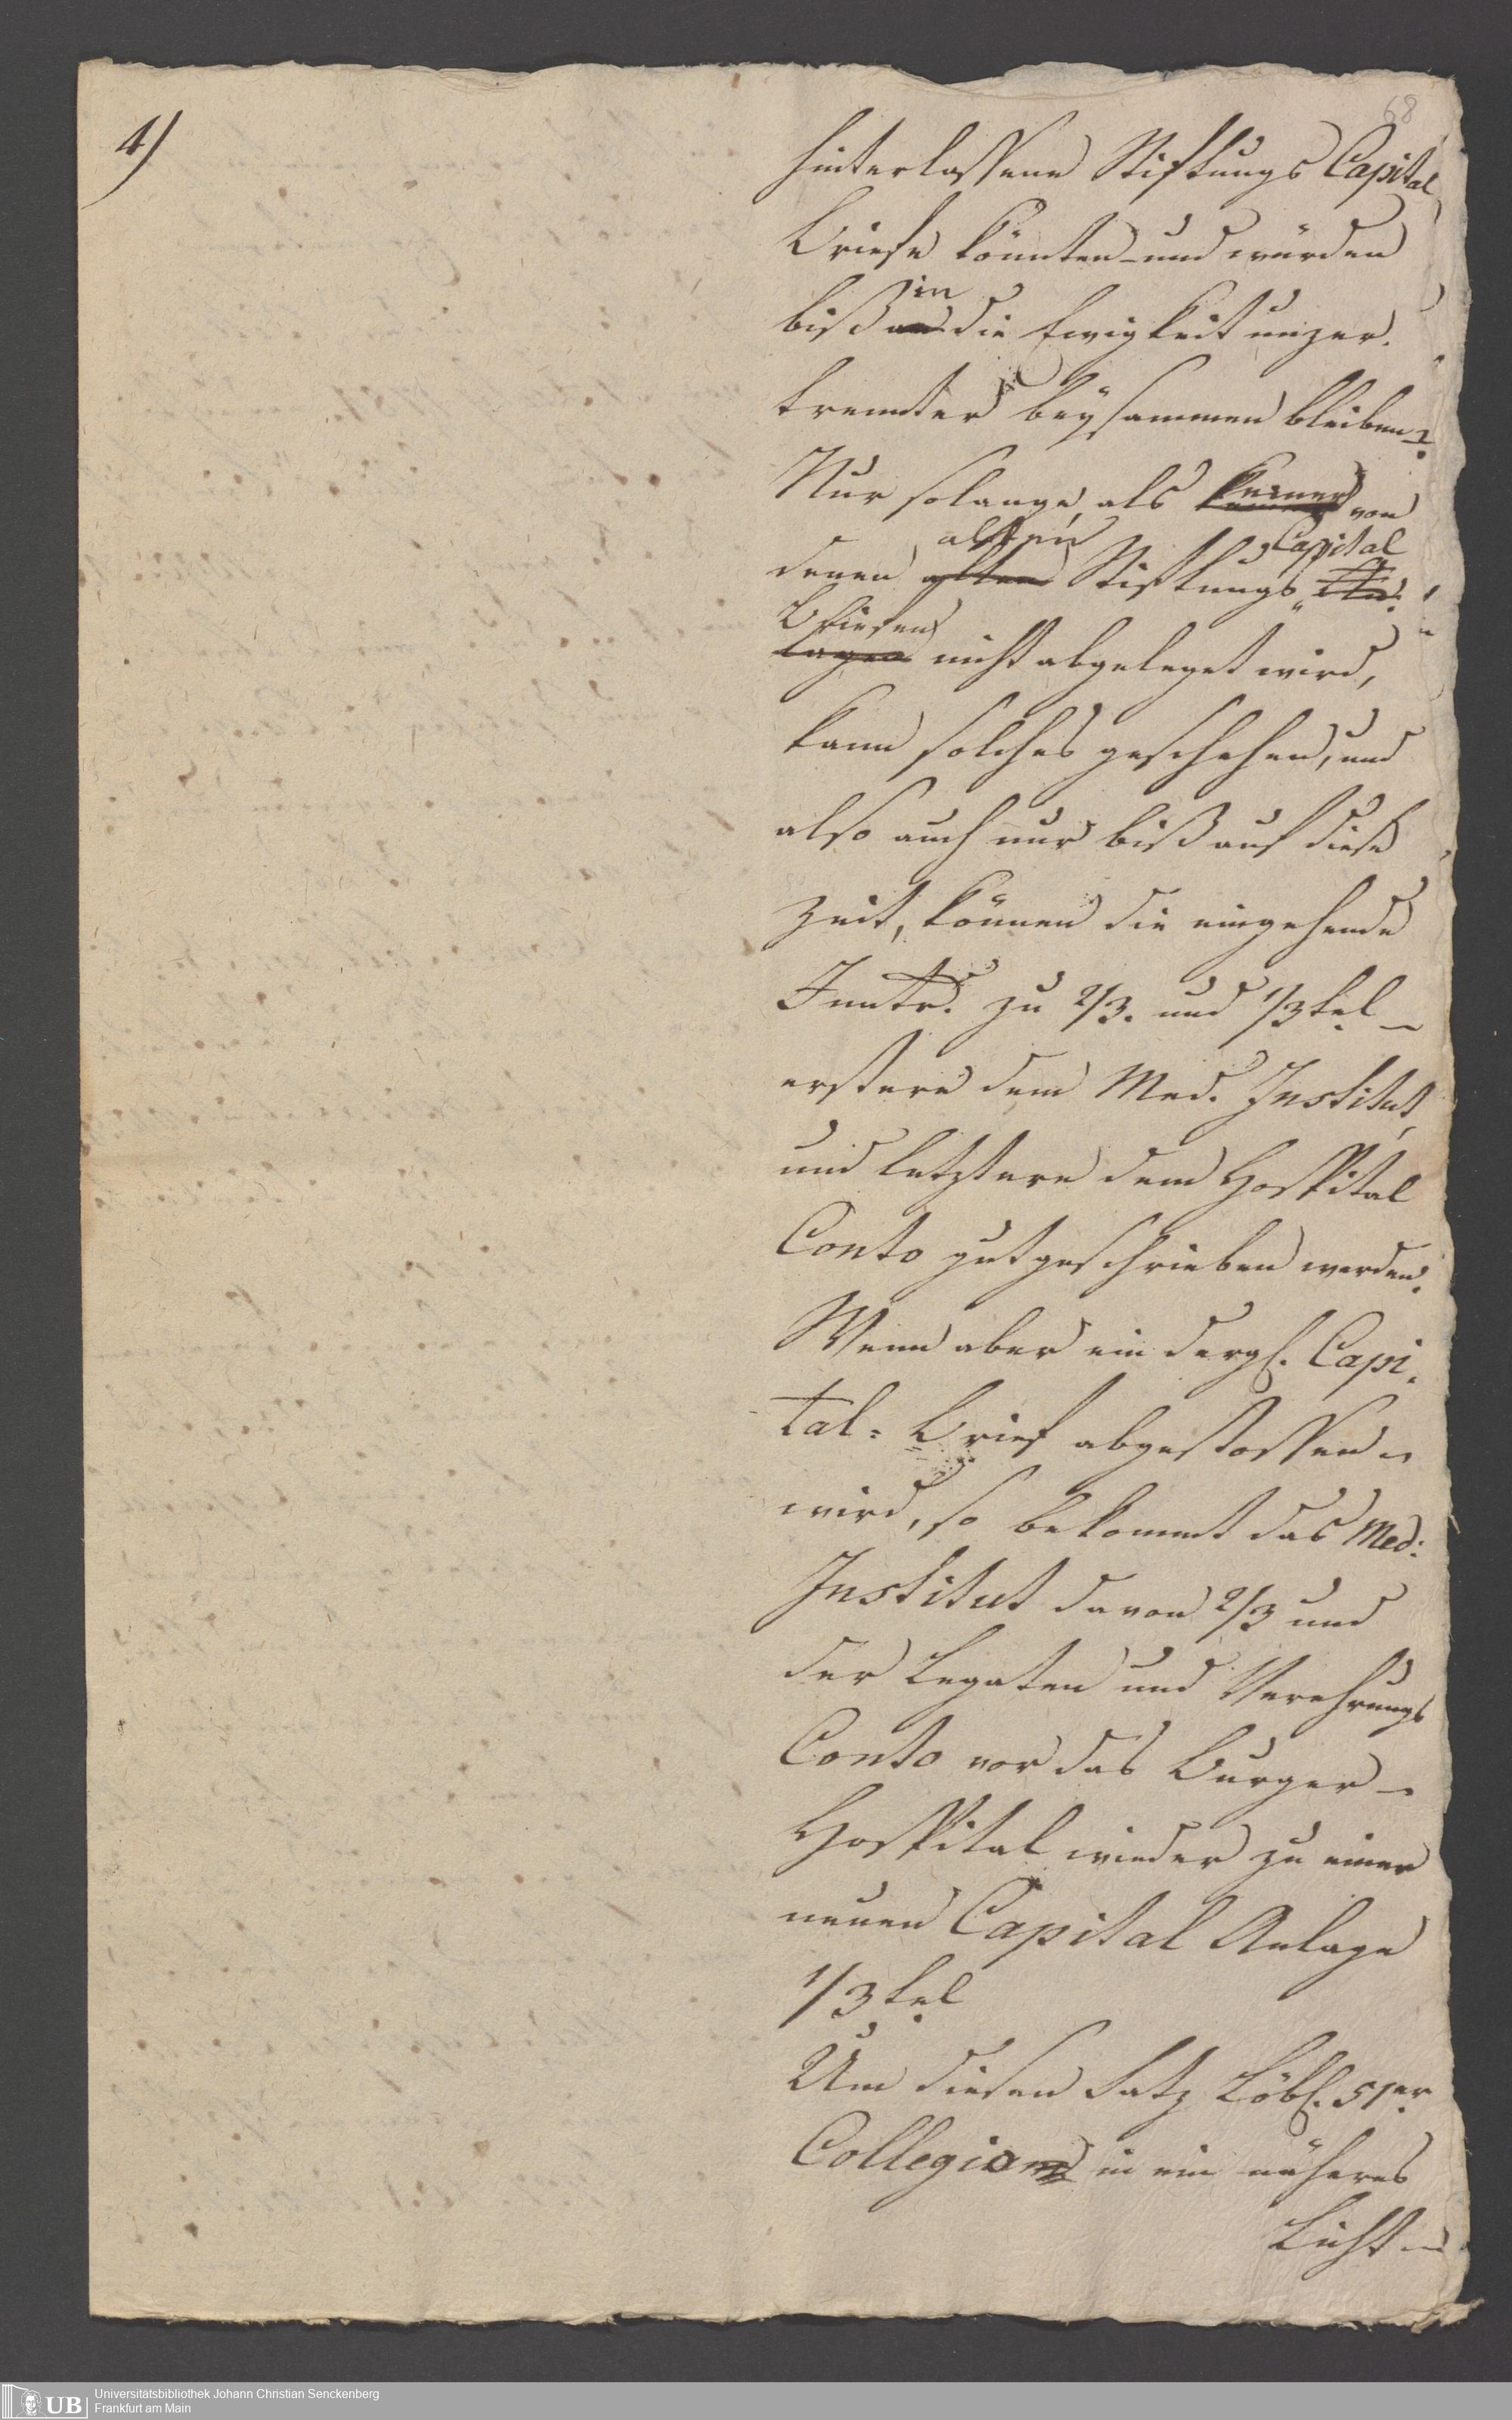 68
4)
hinterlassene Stiftungs Capital
Briefe könnten und würden
biß in die Ewigkeit unzer-
trennter beysammen bleiben?
Nur solange, als keiner von
denen alten Stiftungs Capital
Briefen nicht abgeleget wird,
kann solches geschehen, und
also auch nur biß auf diese
Zeit, können die eingehende
Inntr. zu 2/3. und 1/3tel
erstere dem Med. Institut,
und letztere dem Hospital
Conto gutgeschrieben werden.
Wenn aber ein dergl. Capi-
tal-Brief abgestossen
wird, so bekommt das Med:
Institut davon 2/3 und
der Legaten und Verehrungs
Conto vor das Burger
Hospital wieder zu einer
neuen Capital Anlage
1/3tel
Um diesen Satz Löbl. 51er
Collegio in ein näheres
Licht
UB
Universitätsbibliothek Johann Christian Senckenberg
Frankfurt am Main